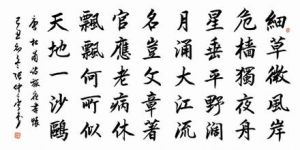 細草微風岸
危檣獨夜舟
星垂平野闊
月涌大江流
名豈文章著
官應老病休
飄飄何所似
天地一沙鷗
唐杜甫詩旅夜書懷